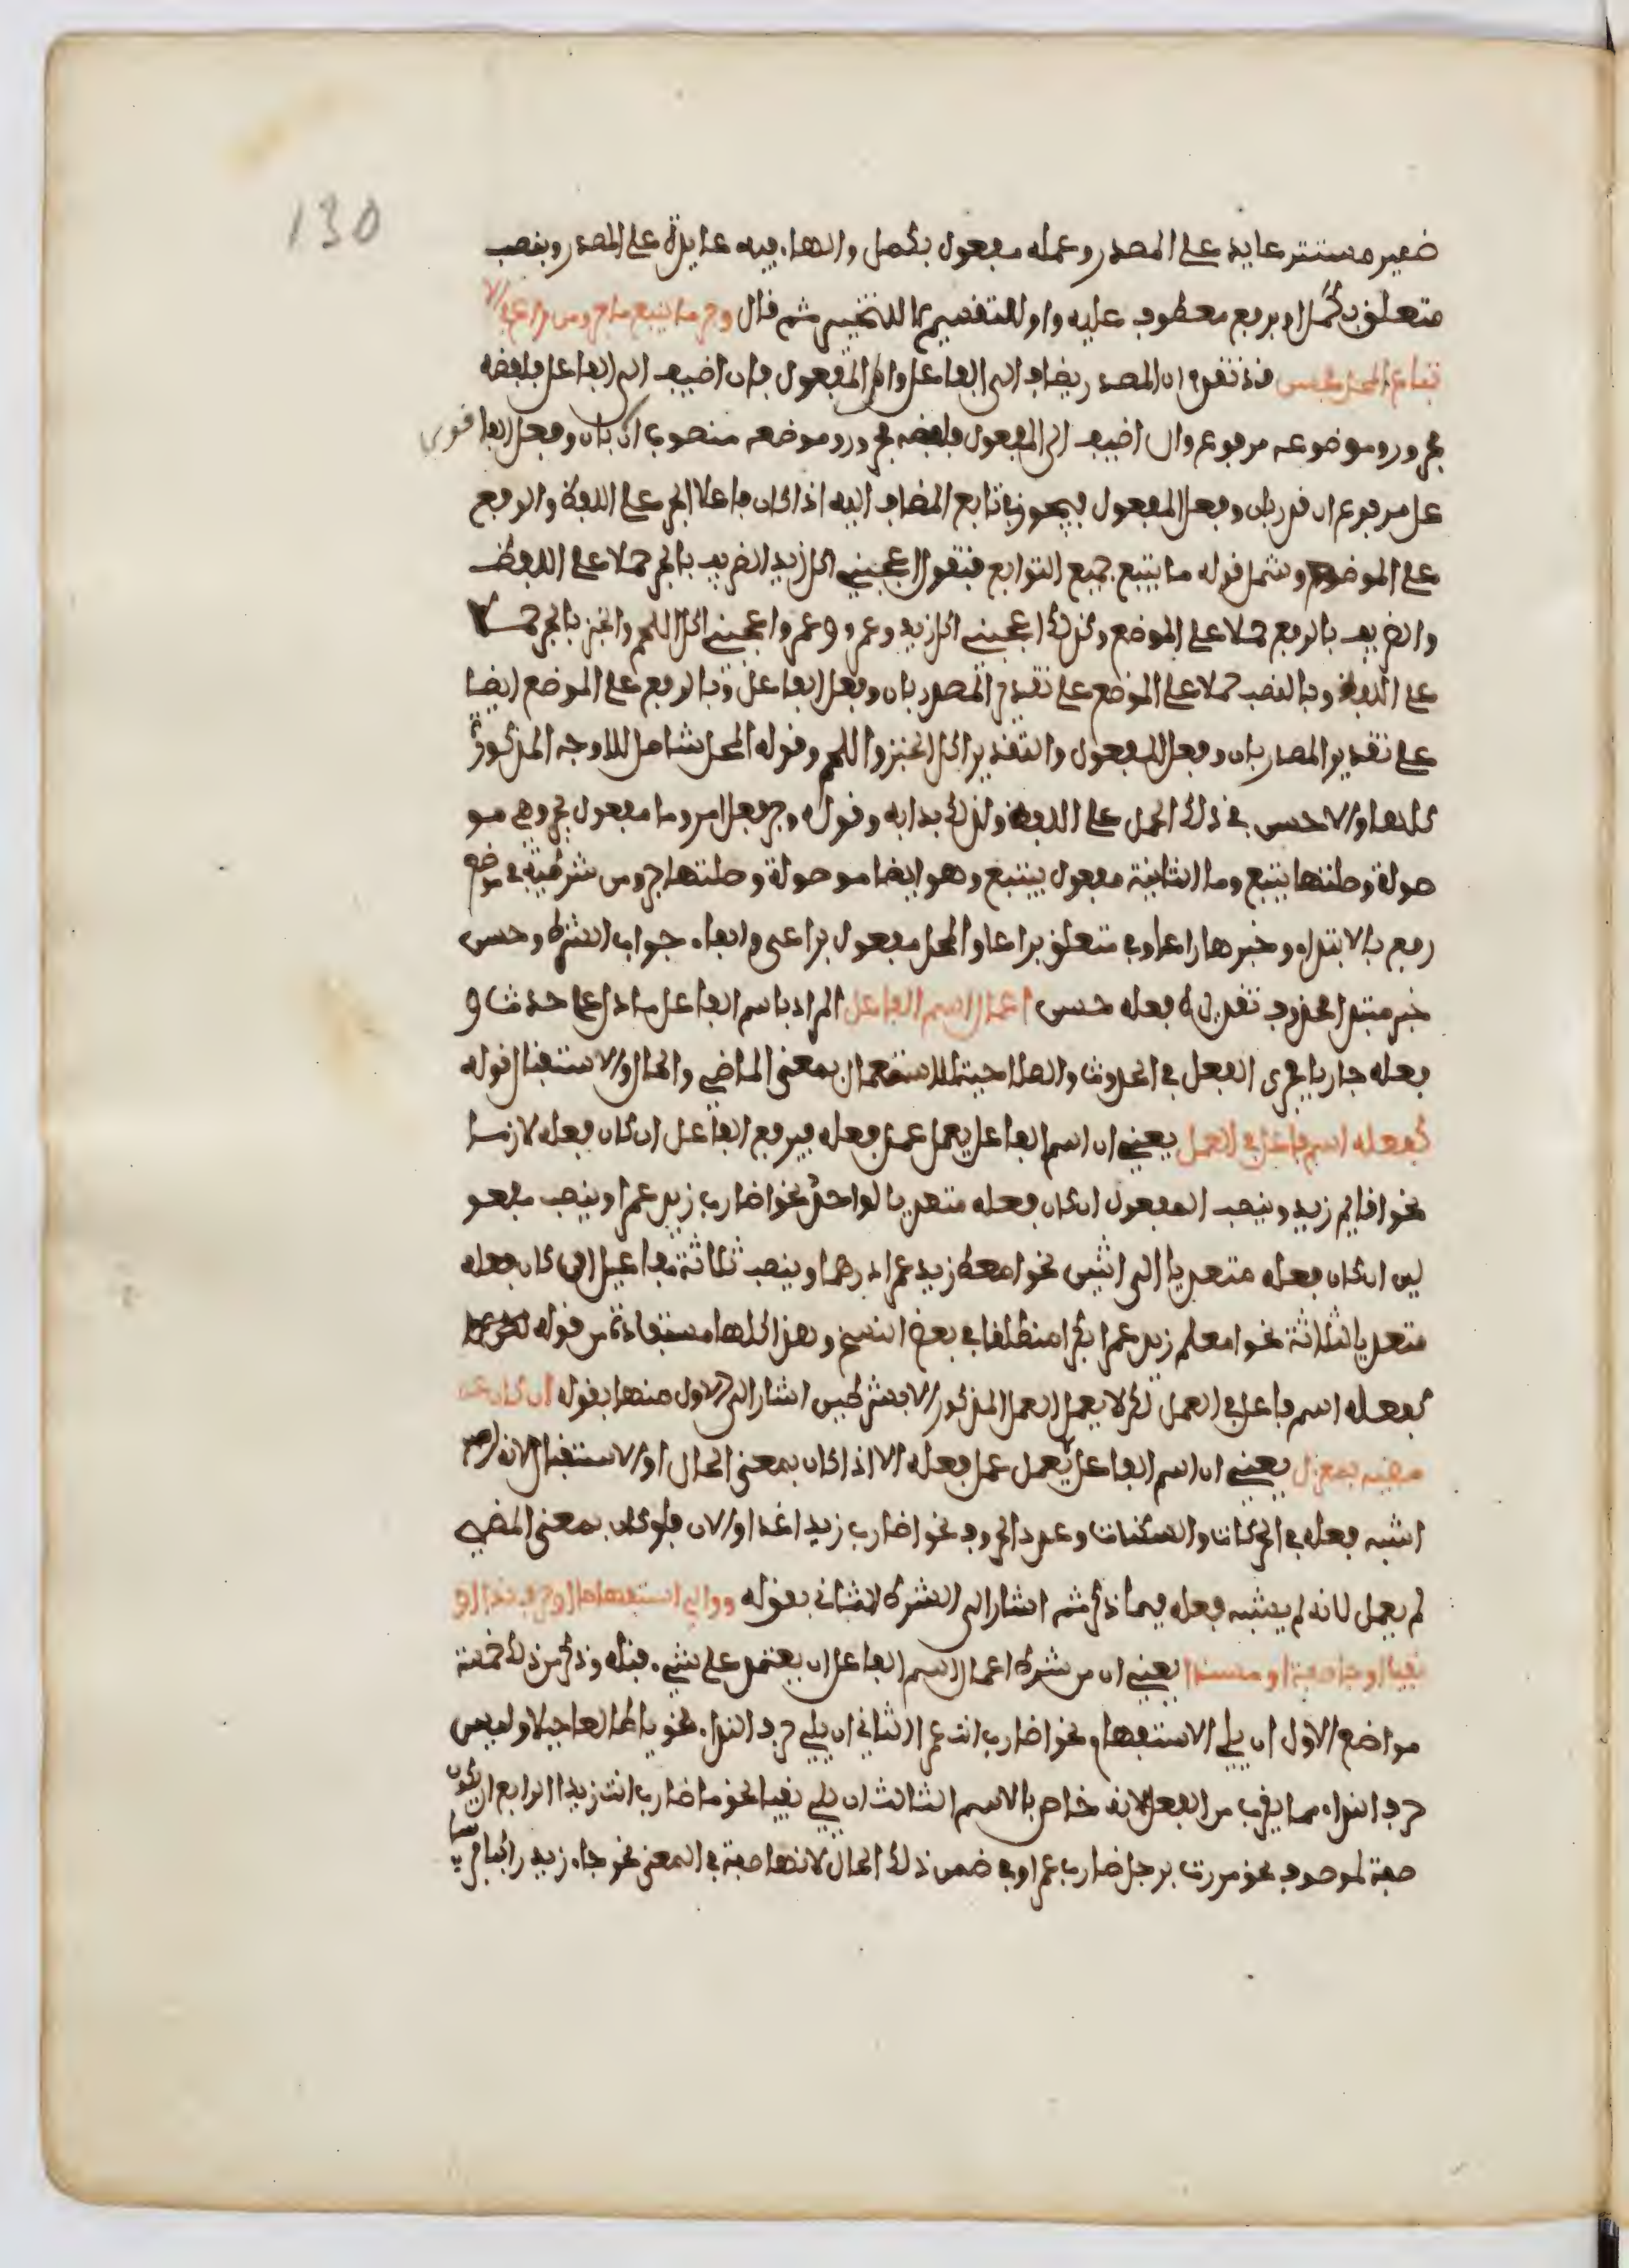 130
ضمير مستتر عايد على المصدر وعمله مفعول بكمل والهاء فيه عايدة على المصدر وبنصب
متعلق بكمل او برفع معطوف عليه واو للتقسيم لا للتخيير ثم قال وجر ما يتبع ما جر ومن راعى الا
تباع المحل فحسن قد تقدم ان المصدر يضاف الى الفاعل والى المفعول فان اضيف الى الفاعل فلفظه
مجرور وموضوعه مرفوع وان اضيف الى المفعول فلفظه مجرور وموضعه منصوب ان بان وفعل الفا
عل مرفوع ان قدر بان وفعل المفعول فيجوز في تابع المضاف اليه اذا كان فاعلا الجر على اللفظ والرفع
على الموضع وشمل قوله ما يتبع جميع التوابع فتقول اعجبني اكل زيد الظريف بالجر حملا على اللفظ
والظريف بالرفع حملا على الموضع وكذلك اعجبني اكل زيد وعمرو وعمرو واعجبني اكل اللحم والخبز بالجر حملا
على اللفظ وبالنصب حملا على الموضع على تقدير المصدر بان وفعل الفاعل وبالرفع على الموضع ايضا
على تقدير المصدر بان وفعل المفعول والتقدير اكل الخبز واللحم وقوله المحل شامل للاوجه المذكورة
كلها والاحسن في ذلك الحمل على اللفظ ولذلك بدا به وقوله وجر فعل امر وما مفعول بجر وهي مو
صولة وصلتها يتبع وما الثانية مفعول بيتبع وهو ايضا موصولة وصلتها جر ومن شرطية في موضع
رفع بالابتداء وخبرها راعا وفي متعلق براعا والمحل مفعول براعى والفاء جواب الشرط وحسن
خبر مبتدا محذوف تقديره فعله حسن اعمال اسم الفاعل المراد باسم الفاعل ما دل على حدث و
فعله جاريا مجرى الفعل في الحدوث والصلاحية للاستعمال بمعنى الماضي والحال والاستقبال قوله
كفعله اسم فاعل في العمل يعني ان اسم الفاعل يعمل عمل فعله فيرفع الفاعل ان كان فعله لازما
نحو اقايم زيد وينصب المفعول ان كان فعله متعديا لواحد نحو اضارب زيد عمرا وينصب مفعو
لين ان كان فعله متعديا الى اثنين نحو امعط زيد عمرا درهما وينصب ثلاثة مفاعيل ان كان فعله
متعديا لثلاثة نحو امعلم زيد عمرا بكرا منطلقا في بعض النسخ وهذا كلها مستفادة من قوله
كفعله اسم فاعل في العمل لكن لا يعمل العمل المذكور الا بشرطين اشار الى الاول منها بقوله ان كان عن
مضيه بمعزل يعني ان اسم الفاعل لا يعمل عمل فعله الا اذا كان بمعنى الحال او الاستقبال لانه
اشبه فعله في الحركات والسكنات وعدد الحروف نحو اضارب زيد اغدا او الان فلو كان بمعنى المضي
لم يعمل لانه لم يشبه فعله فيما ذكر ثم اشار الى الشرط الثاني بقوله وولي استفهاما او حرف ندا او
نفيا او جا صفة او مسندا يعني ان من شرط اعمال اسم الفاعل ان يعتمد على شيء قبله وذكر من ذلك خمسة
مواضع الاول ان يلي الاستفهام نحو اضارب انت عمرا الثاني ان يلي حرف النداء نحو يا طالعا جبلا وليس
حرف النداء مما يقرب من الفعل لانه خاص بالاسم الثالث ان يلي نفيا نحو ما ضارب انت زيدا الرابع ان يكون
صفة لموصوف نحو مررت برجل ضارب عمرا وفي ضمن ذلك الحال لانها صفة في المعنى نحو جاء زيد راكبا فرسا